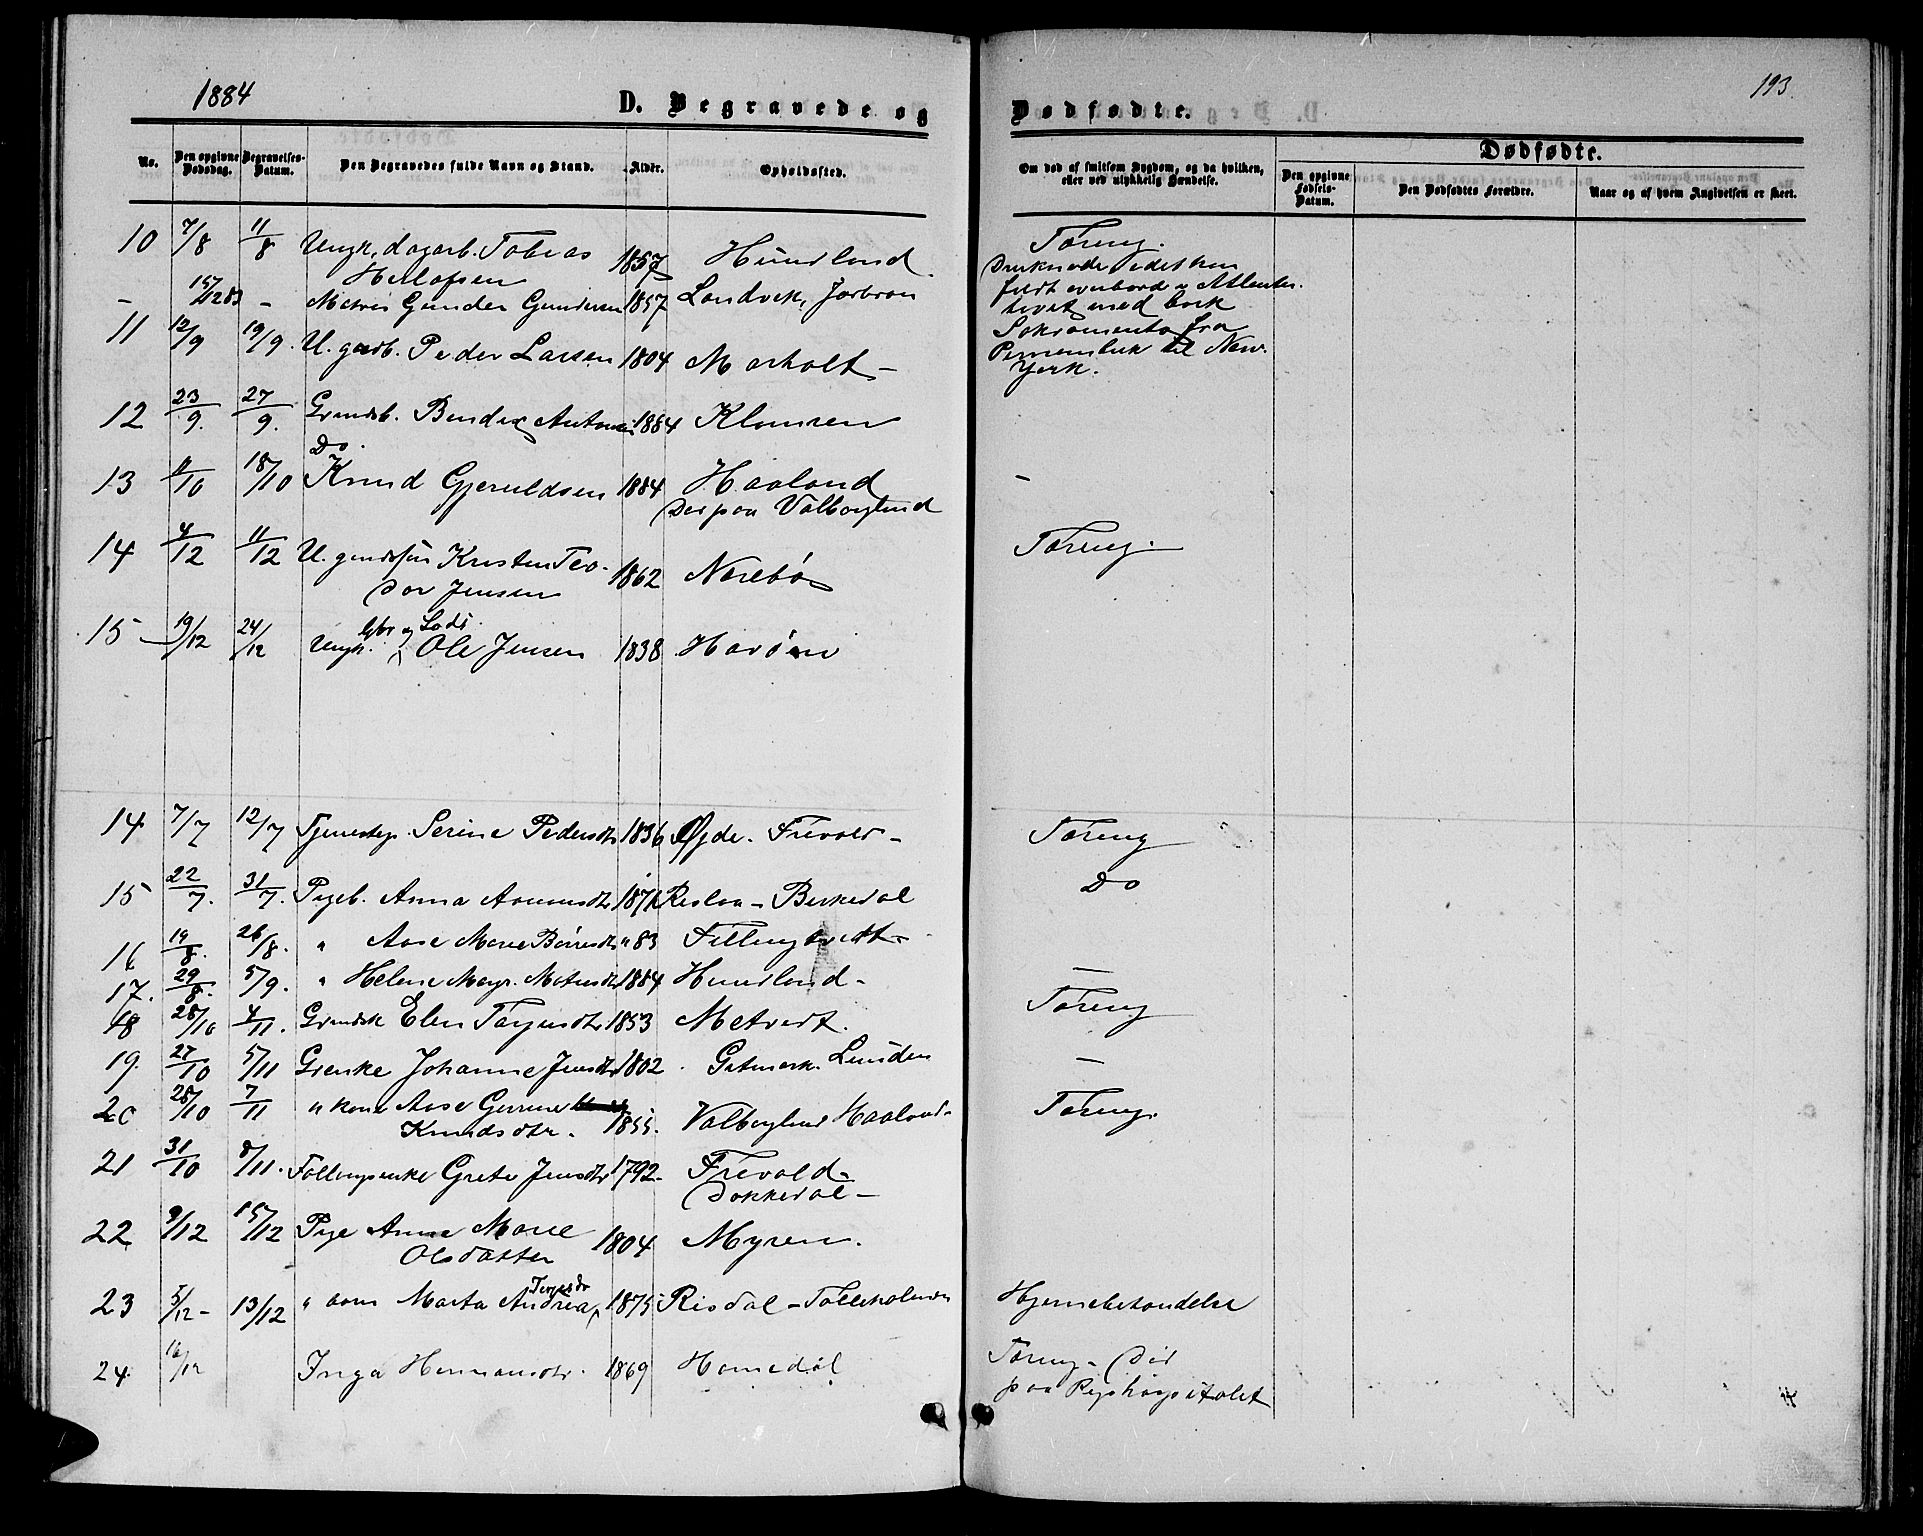 1884
193.
D. Begravede og
Dødfødte.
No.
Den opgivne Dødsdag.
Begravelses-Datum.
Den Begravedes fulde Navn og Stand.
Alder.
Opholdssted.
Om død af smitsom Sygdom, og da hvilken, eller ved ulykkelig Hændelse.
Dødfødte.
Den opgivne Fødsels-Datum.
Den Dødfødtes Forældre.
Naar og af hvem Angivelsen er skeet.
10 7/8 11/8 Ungk. dagarb. Tobias 1857 Hundland. Tæring.
– 15/12 83 – Matros Gunder Gundersen 1857 Landvik, Druknede idet han
faldt overbord i Atlanter-
havet med bark
Sakramento fra
til New-
York.
11 12/9 19/9. U. gaardb. Peder Larsen 1804 Morholt –
12 23/9. 27/9. Grmdsb. Bendix Anton 1884
13 /10 18/10 Do. Knud Gjeruldsen 1884 Haaland –
Dør paa Valborglund
14 4/12 11/12 U. Kristen Teo- Tæring.
dor Jensen 1862 Narebø
15 19/12 24/12 Ungk. og Lods. Ole Jensen 1838 Havøen
14 7/7 12/7 Tjenestep. Serine Pedersdtr 1836 Øyde. Frivold – Tæring
15 22/7. 31/7. Pigeb. Anna 1871 Birkedal Do
16 19/8. 26/8. " Aase Marie Børresdtr " 83
17. 29/8. 5/9. " Helene 1884 Hundland – –
18 28/10 4/11. Elen Terjesdtr 1853 Metveit. Tæring
19. 27/10 5/11 Grenke Johanne Jensdtr 1802. Gitmark. Lunden –
20 28/10 7/11 " kone Aase Gurine
Knudsdtr. 1855. Valborglund Haaland – Tæring.
21 31/10 8/11. Grete Jensdtr 1792 – Frivold –
Dokkedal –
22 9/12 15/12 Pige Anne Marie
Olsdatter 1804 Myren.
23 5/12 – 13/12 " Marta Andrea Terjesdr 1875 Risdal – Tolleholmen Hjernebetændelse
24. 16/12 Inga Hermansdtr. 1869 Homedal Tæring – Død
paa Rigshospitalet